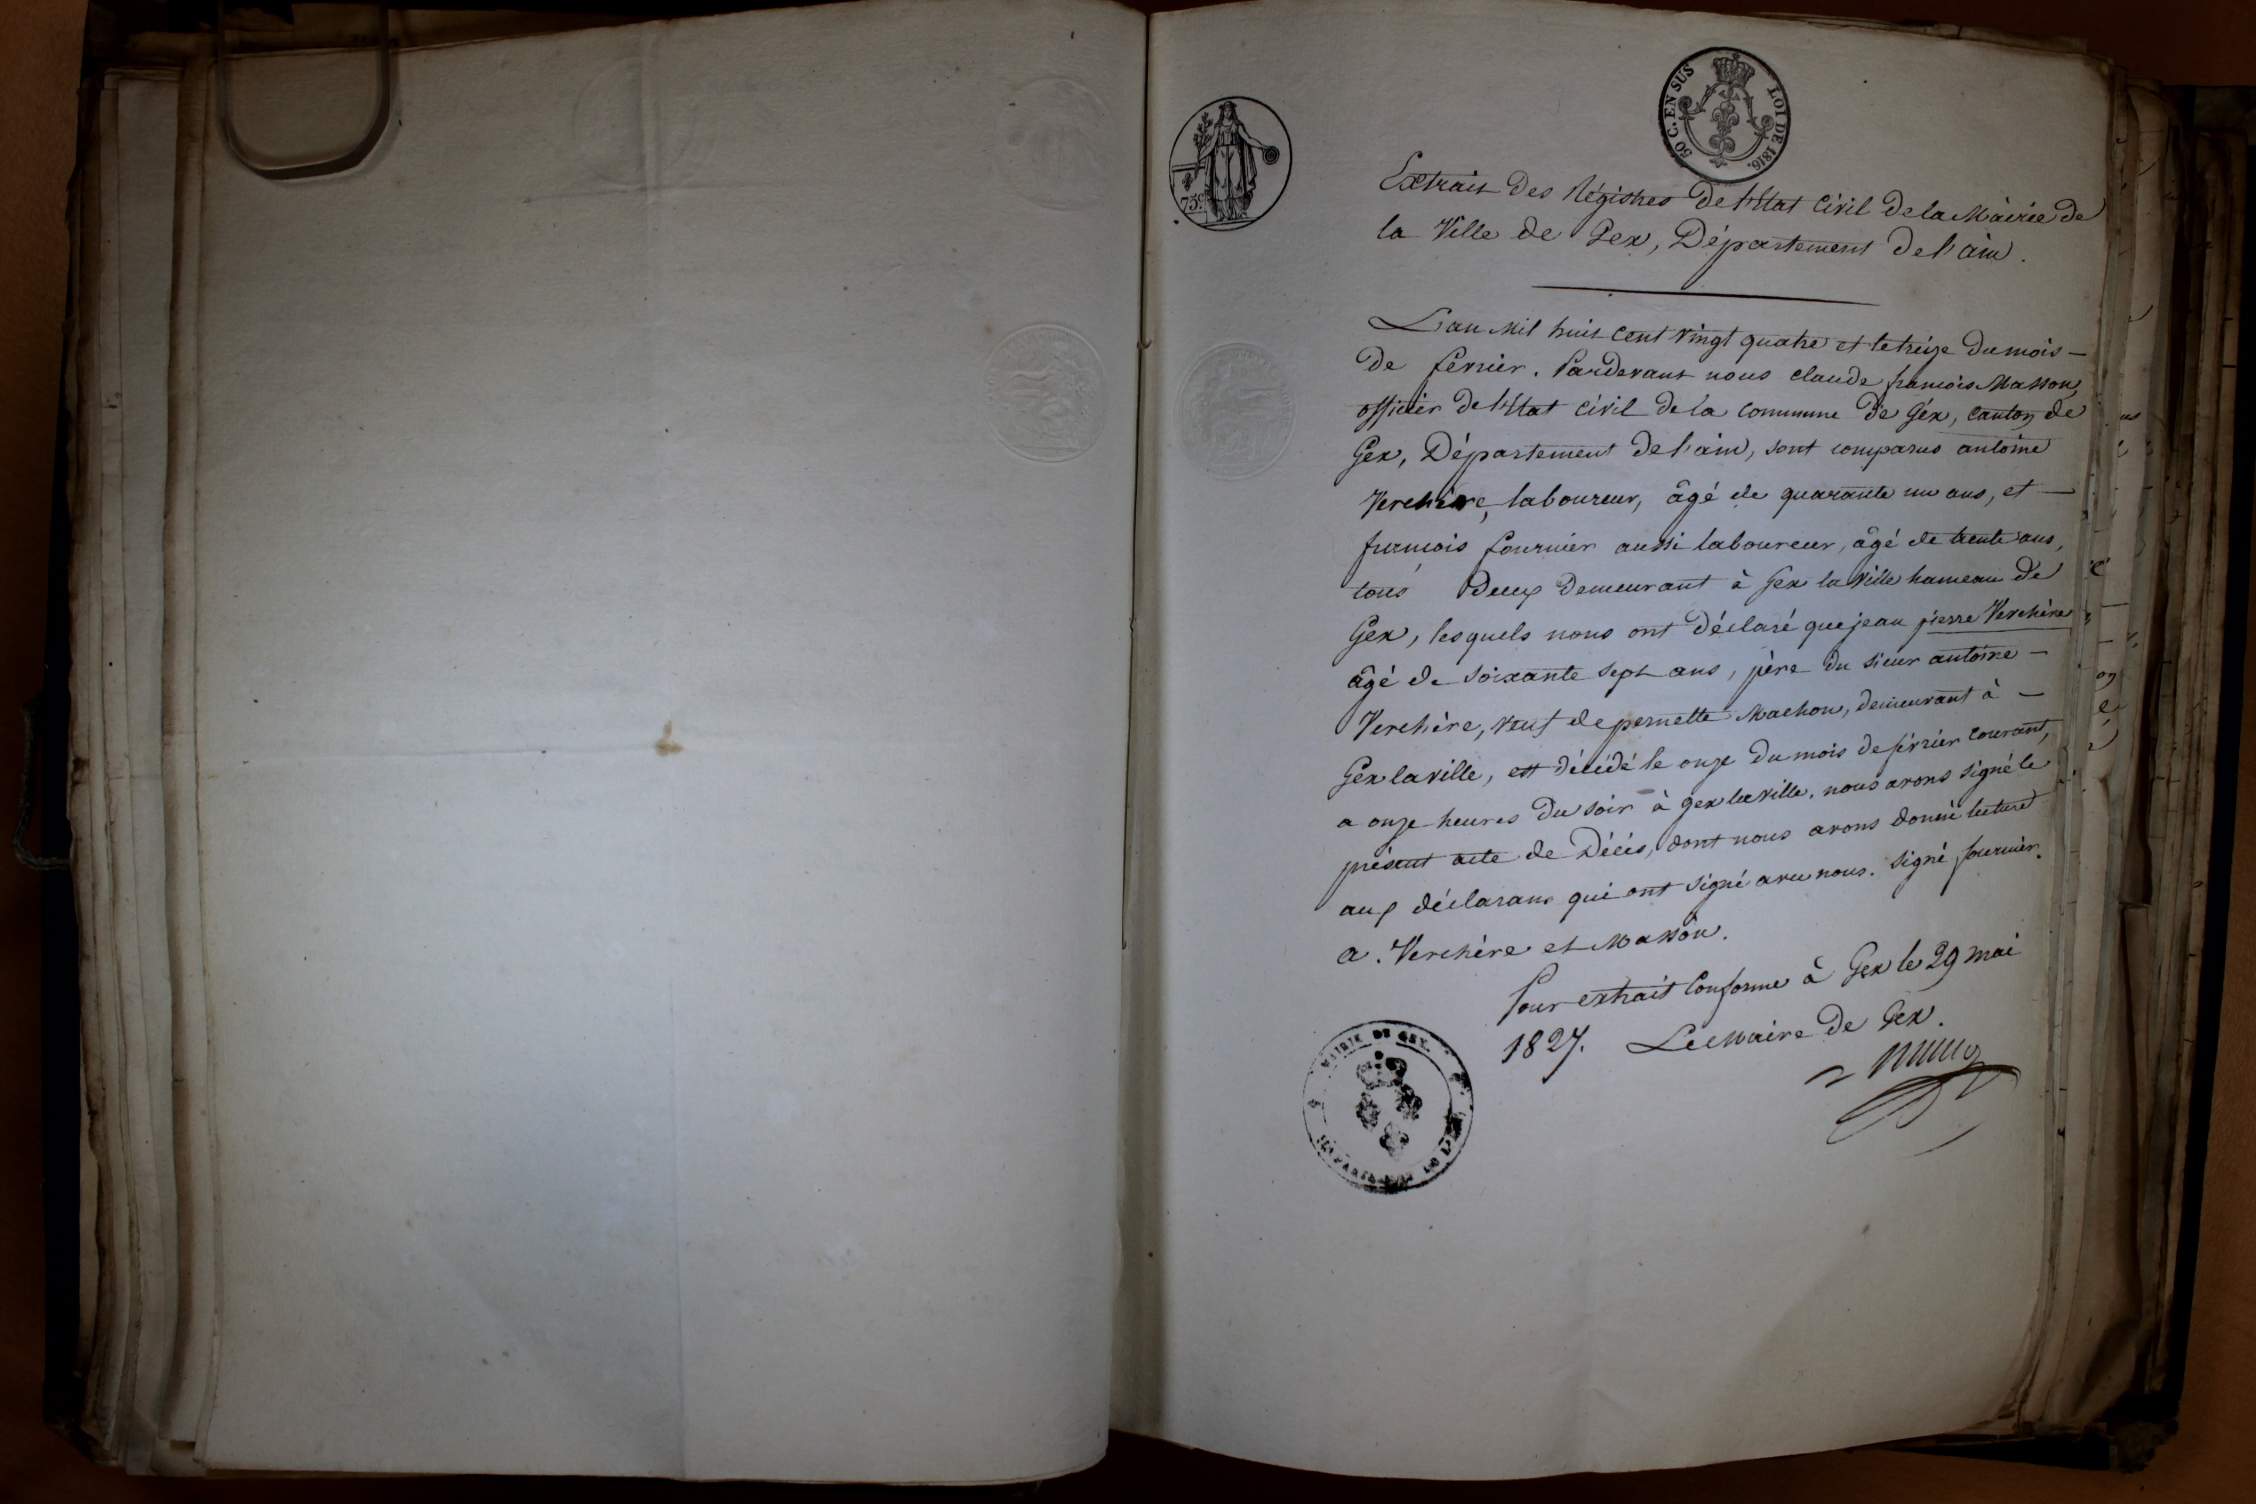 50 C. EN SUS LOI DE 1816.
75c
Extrait des Régistres de l'Etat Civil de la Mairie de
la Ville de Gex, Département de l'ain.
L'an Mil huit cent vingt quatre et le treize du mois —
de fevrier. Pardevant nous claude francois Masson,
officier de l'Etat civil de la commune de Géx, canton de
Gex, Département de l'ain, sont comparus antoine
Verchère, laboureur, âgé de quarante un ans, et —
francois fournier aussi laboureur, âgé de trente ans,
tous Deux demeurant à Gex la ville hameau de
Gex, lesquels nous ont déclaré que jean pierre Verchère
âgé de soixante sept ans, père du sieur antoine —
Verchère, veuf de pernette Machon, demeurant à —
Gex la ville, est décédé le onze du mois de février courant,
a onze heures du soir à gex la ville. nous avons signé le
présent acte de Décès, dont nous avons donné lecture
aux déclarans qui ont signé avec nous. signé fournier.
a. Verchère et Masson.
Pour extrait conforme à Gex le 29 mai
1827. Le Maire de Gex.
MAIRIE DE GEX.